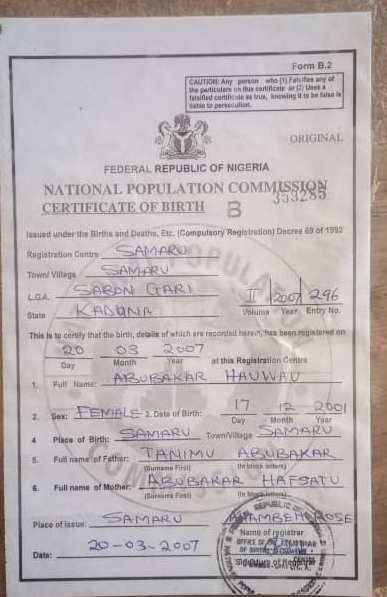 Form B.2
CAUTION: Any person who (1) Falsifies any of
the particulars on this certificate or (2) Uses a
falsified certificate as true, knowing it to be false is
liable to persecution.
ORIGINAL
FEDERAL REPUBLIC OF NIGERIA
NATIONAL POPULATION COMMISSION
CERTIFICATE OF BIRTH B 353285
Issued under the Births and Deaths, Etc. (Compulsory Registration) Decree 69 of 1992
Registration Centre SAMARU
Town/ Village SAMARU
L.G.A. SABON GARI II 2007 296
State KADUNA Volume Year Entry No.
This is to certify that the birth, details of which are recorded herein, has been registered on
20 03 2007 at this Registration Centre
Day Month Year
1. Full Name: ABUBAKAR HAUWAU
2. Sex: FEMALE 3. Date of Birth: 17 12 2001
Day Month Year
4 Place of Birth: SAMARU Town/Village SAMARU
5. Full name of Father: TANIMU ABUBAKAR
(Surname First) (in block letters)
6. Full name of Mother: ABUBAKAR HAFSATU
(Surname First) (in block letters)
Place of issue: SAMARU ROSE
Name of registrar
Date: 20-03-2007
Signature of Registrar